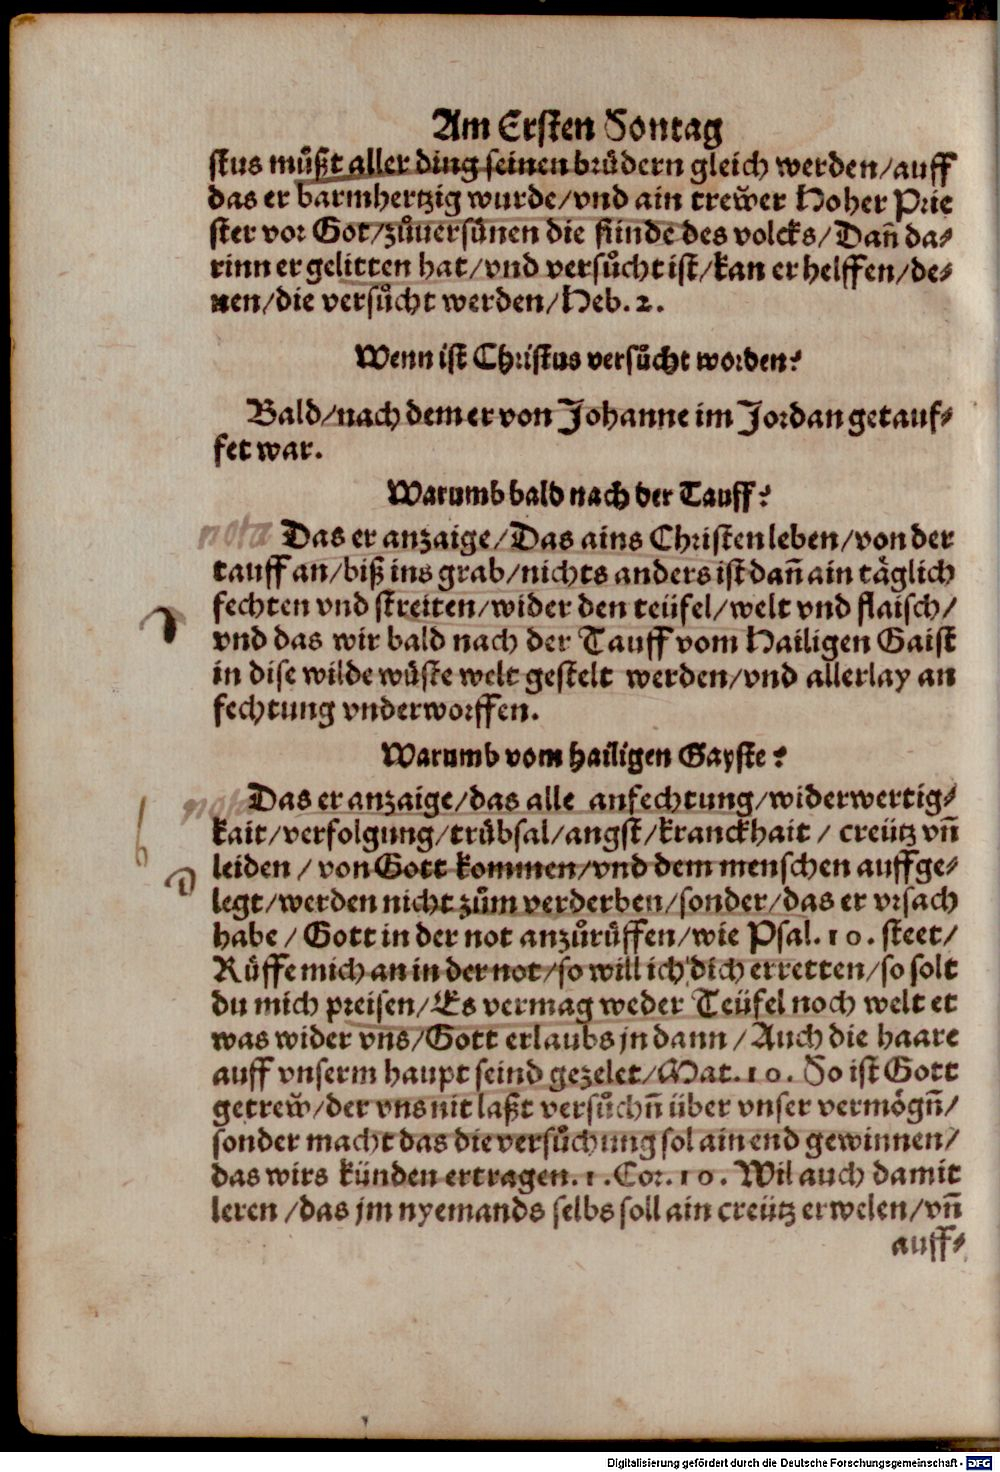 Am Ersten Sontag
stus müßt aller ding seinen brüdern gleich werden/auff
das er barmhertzig wurde/vnd ain trew̌er Hoher Prie
ster vor Got/zůuersünen die sünde des volcks/Dañ da⸗
rinn er gelitten hat/vnd versůcht ist/kan er helffen/de⸗
nen/die versůcht werden/Heb.2.
Wenn ist Christus versůcht worden?
Bald/nach dem er von Johanne im Jordan getauf⸗
fet war.
Warumb bald nach der Tauff?
nota Das er anzaige/Das ains Christen leben/von der
tauff an/biß ins grab/nichts anders ist dañ ain täglich
fechten vnd streiten/wider den teüfel/welt vnd flaisch/
vnd das wir bald nach der Tauff vom Hailigen Gaist
in dise wilde wüste welt gestelt werden/vnd allerlay an
fechtung vnderworffen.
Warumb vom hailigen Gayste?
nota Das er anzaige/das alle anfechtung/widerwertig⸗
kait/verfolgung/trübsal/angst/kranckhait / creütz vñ
leiden / von Gott kommen/vnd dem menschen auffge⸗
legt/werden nicht zům verderben/sonder/das er vrsach
habe / Gott in der not anzůrüffen/wie Psal.10. steet/
Rüffe mich an in der not/so will ich dich erretten/so solt
du mich preisen/Es vermag weder Teüfel noch welt et
was wider vns/Gott erlaubs jn dann / Auch die haare
auff vnserm haupt seind gezelet/Mat.10. So ist Gott
getrew̌/der vns nit laßt versůchñ über vnser vermögñ/
sonder macht das die versůchung sol ain end gewinnen/
das wirs künden ertragen.1.Cor.10. Wil auch damit
leren /das jm nyemands selbs soll ain creütz erwelen/vñ
auff⸗
Digitalisierung gefördert durch die Deutsche Forschungsgemeinschaft - DFG